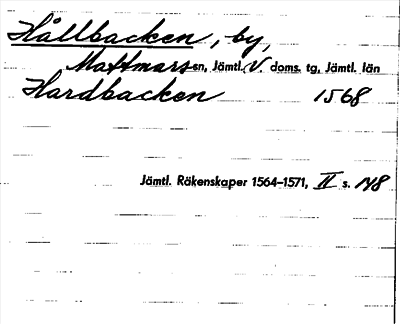 Hållbacken, by,
Mattmars sn, Jämtl. V. doms. tg, Jämtl. län
Hardbacken 1568
Jämtl. Räkenskaper 1564–1571, II s. 148